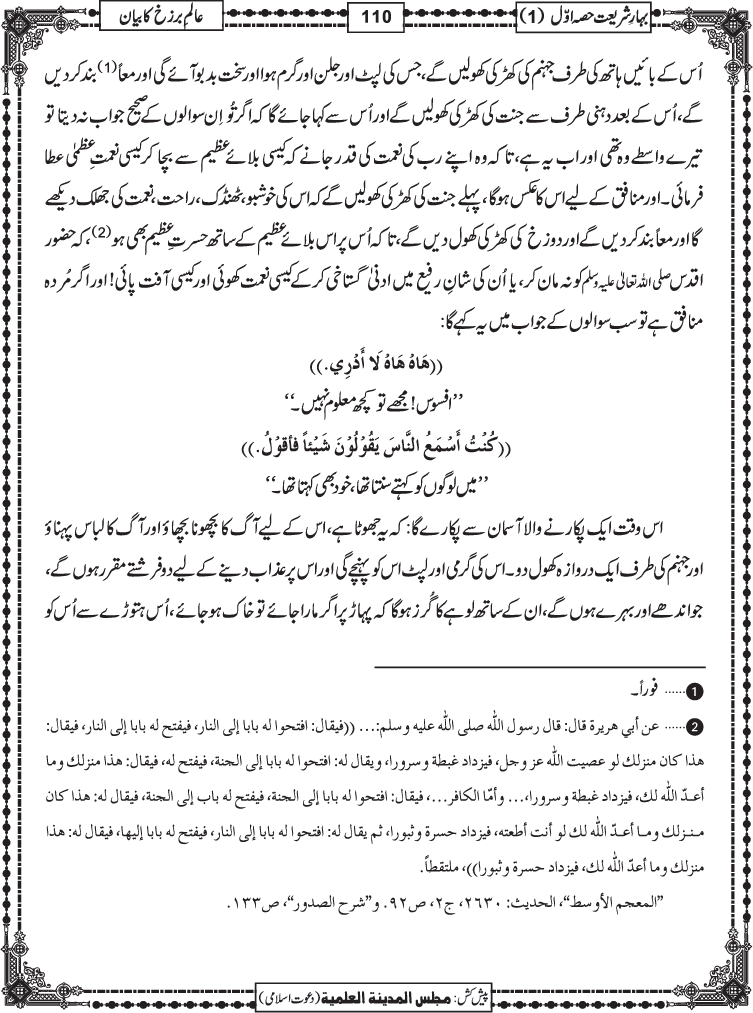 بہارِ شریعت حصہ اوّل (1)
110
عالمِ برزخ کا بیان
اُس کے بائیں ہاتھ کی طرف جہنم کی کھڑکی کھولیں گے، جس کی لپٹ اور جلن اور گرم ہوا اور سخت بدبو آئے گی اور معاً(1) بند کر دیں
گے، اُس کے بعد دہنی طرف سے جنت کی کھڑکی کھولیں گے اور اُس سے کہا جائے گا کہ اگر تُو اِن سوالوں کے صحیح جواب نہ دیتا تو
تیرے واسطے وہ تھی اور اب یہ ہے، تا کہ وہ اپنے رب کی نعمت کی قدر جانے کہ کیسی بلائے عظیم سے بچا کر کیسی نعمتِ عظمیٰ عطا
فرمائی۔ اور منافق کے لیے اس کا عکس ہوگا، پہلے جنت کی کھڑکی کھولیں گے کہ اس کی خوشبو، ٹھنڈک، راحت، نعمت کی جھلک دیکھے
گا اور معاً بند کر دیں گے اور دوزخ کی کھڑکی کھول دیں گے، تا کہ اُس پر اس بلائے عظیم کے ساتھ حسرتِ عظیم بھی ہو(2)، کہ حضور
اقدس صلی اللہ تعالیٰ علیہ وسلم کو نہ مان کر، یا اُن کی شانِ رفیع میں ادنیٰ گستاخی کر کے کیسی نعمت کھوئی اور کیسی آفت پائی! اور اگر مُردہ
منافق ہے تو سب سوالوں کے جواب میں یہ کہے گا:
((هَاهْ هَاهْ لَا أَدْرِي.))
’’افسوس! مجھے تو کچھ معلوم نہیں۔‘‘
((كُنْتُ أَسْمَعُ النَّاسَ يَقُوْلُوْنَ شَيْئاً فأقوْلُ.))
’’میں لوگوں کو کہتے سنتا تھا، خود بھی کہتا تھا۔‘‘
اس وقت ایک پکارنے والا آسمان سے پکارے گا: کہ یہ جھوٹا ہے، اس کے لیے آگ کا بچھونا بچھاؤ اور آگ کا لباس پہناؤ
اور جہنم کی طرف ایک دروازہ کھول دو۔ اس کی گرمی اور لپٹ اس کو پہنچے گی اور اس پر عذاب دینے کے لیے دو فرشتے مقرر ہوں گے،
جو اندھے اور بہرے ہوں گے، ان کے ساتھ لوہے کا گُرز ہوگا کہ پہاڑ پر اگر مارا جائے تو خاک ہو جائے، اُس ہتوڑے سے اُس کو
1 ...... فوراً۔
2 ...... عن أبي هريرة قال: قال رسول اللّٰه صلى اللّٰه عليه وسلم:... ((فيقال: افتحوا له بابا إلى النار، فيفتح له بابا إلى النار، فيقال:
هذا كان منزلك لو عصيت اللّٰه عز وجل، فيزداد غبطة وسرورا، ويقال له: افتحوا له بابا إلى الجنة، فيفتح له، فيقال: هذا منزلك وما
أعدّ اللّٰه لك، فيزداد غبطة وسرورا،... وأمّا الكافر...، فيقال: افتحوا له بابا إلى الجنة، فيفتح له باب إلى الجنة، فيقال له: هذا كان
منزلك وما أعدّ اللّٰه لك لو أنت أطعته، فيزداد حسرة وثبورا، ثم يقال له: افتحوا له بابا إلى النار، فيفتح له بابا إليها، فيقال له: هذا
منزلك وما أعدّ اللّٰه لك، فيزداد حسرة وثبورا))، ملتقطاً.
”المعجم الأوسط“، الحديث: ٢٦٣٠، ج٢، ص٩٢. و”شرح الصدور“، ص١٣٣.
پیش کش: مجلس المدينة العلمية (دعوتِ اسلامی)